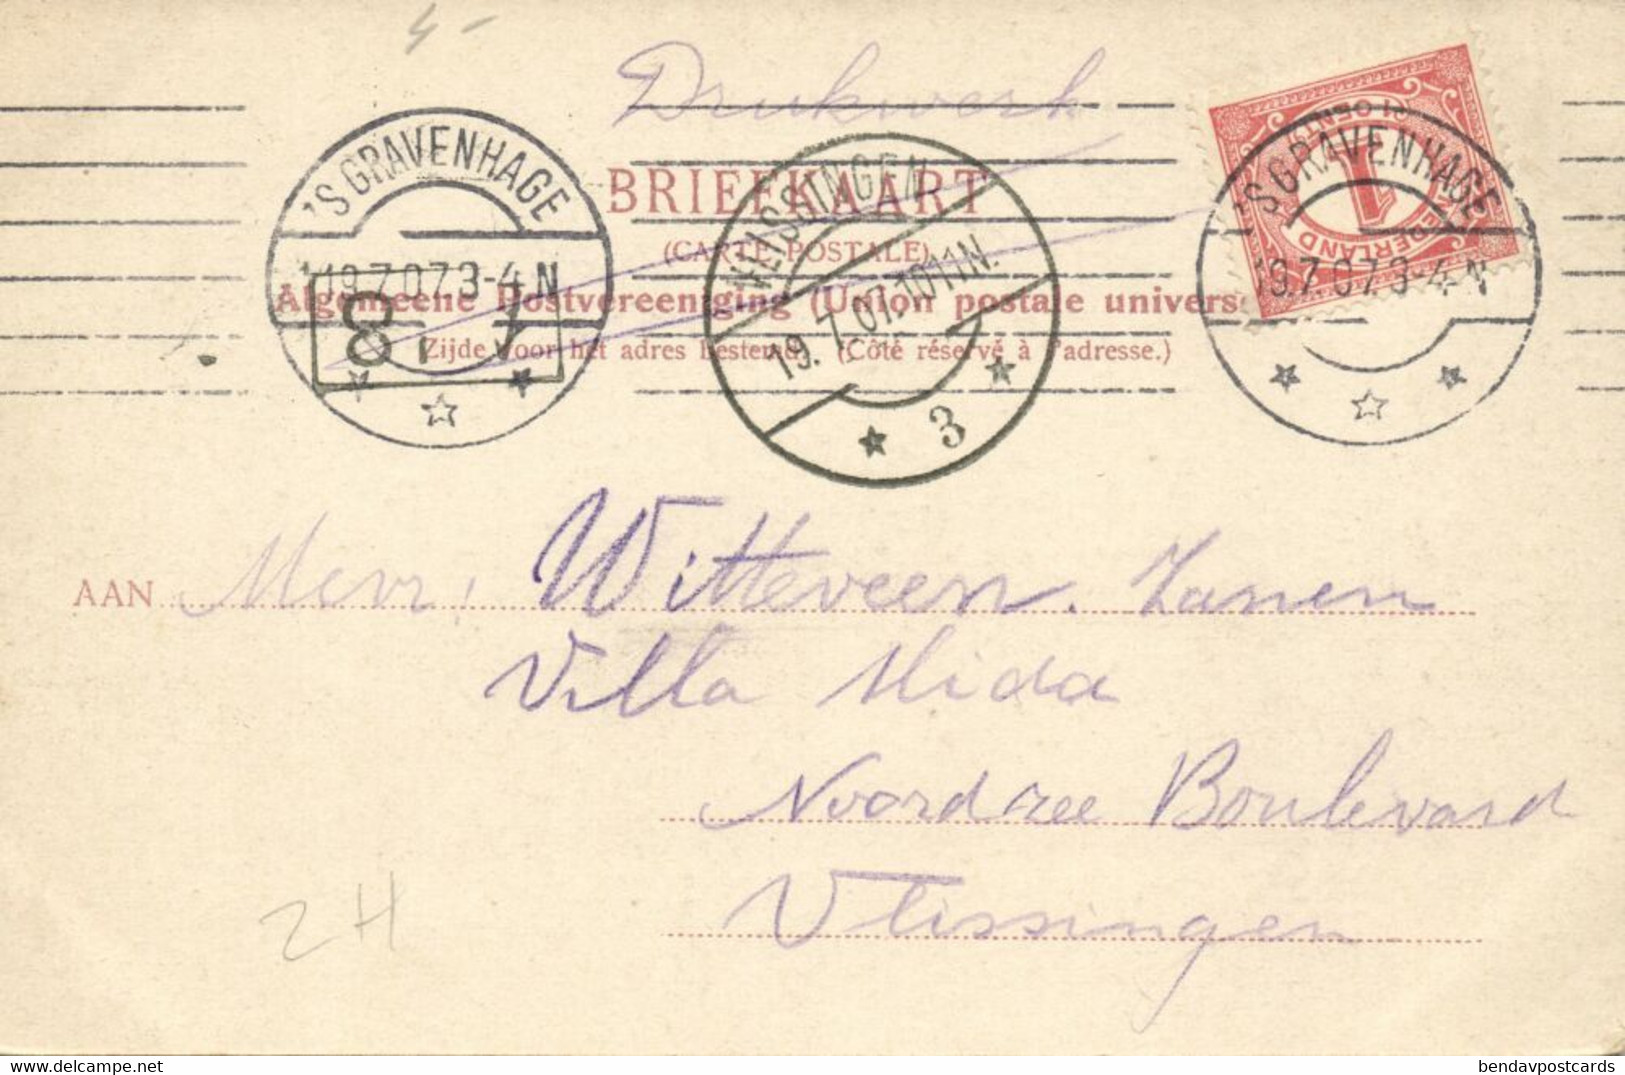 4-
Drukwerk
BRIEFKAART
(CARTE POSTALE)
Algemeene Postvereeniging (Union postale univers
Zijde voor het adres bestemd. (Côté réservé à l'adresse.)
'S GRAVENHAGE
19.7.07.3-4 N
8
VLISSINGEN
19.7.07.10-11N.
3
'S GRAVENHAGE
19.7.07.3-4 N
1
CENT
NEDERLAND
AAN Mevr. Witteveen. Zanen
Villa Mida
Noordzee Boulevard
Vlissingen
2H
bendavpostcards